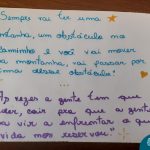 Sempre vai ter uma
montanha, um obstáculo no
caminho e você vai mover
a montanha, vai passar por
cima desse obstáculo."
As vezes a gente tem que
cair pra que a gente
vir a enfrentar o que
vida nos reservou.